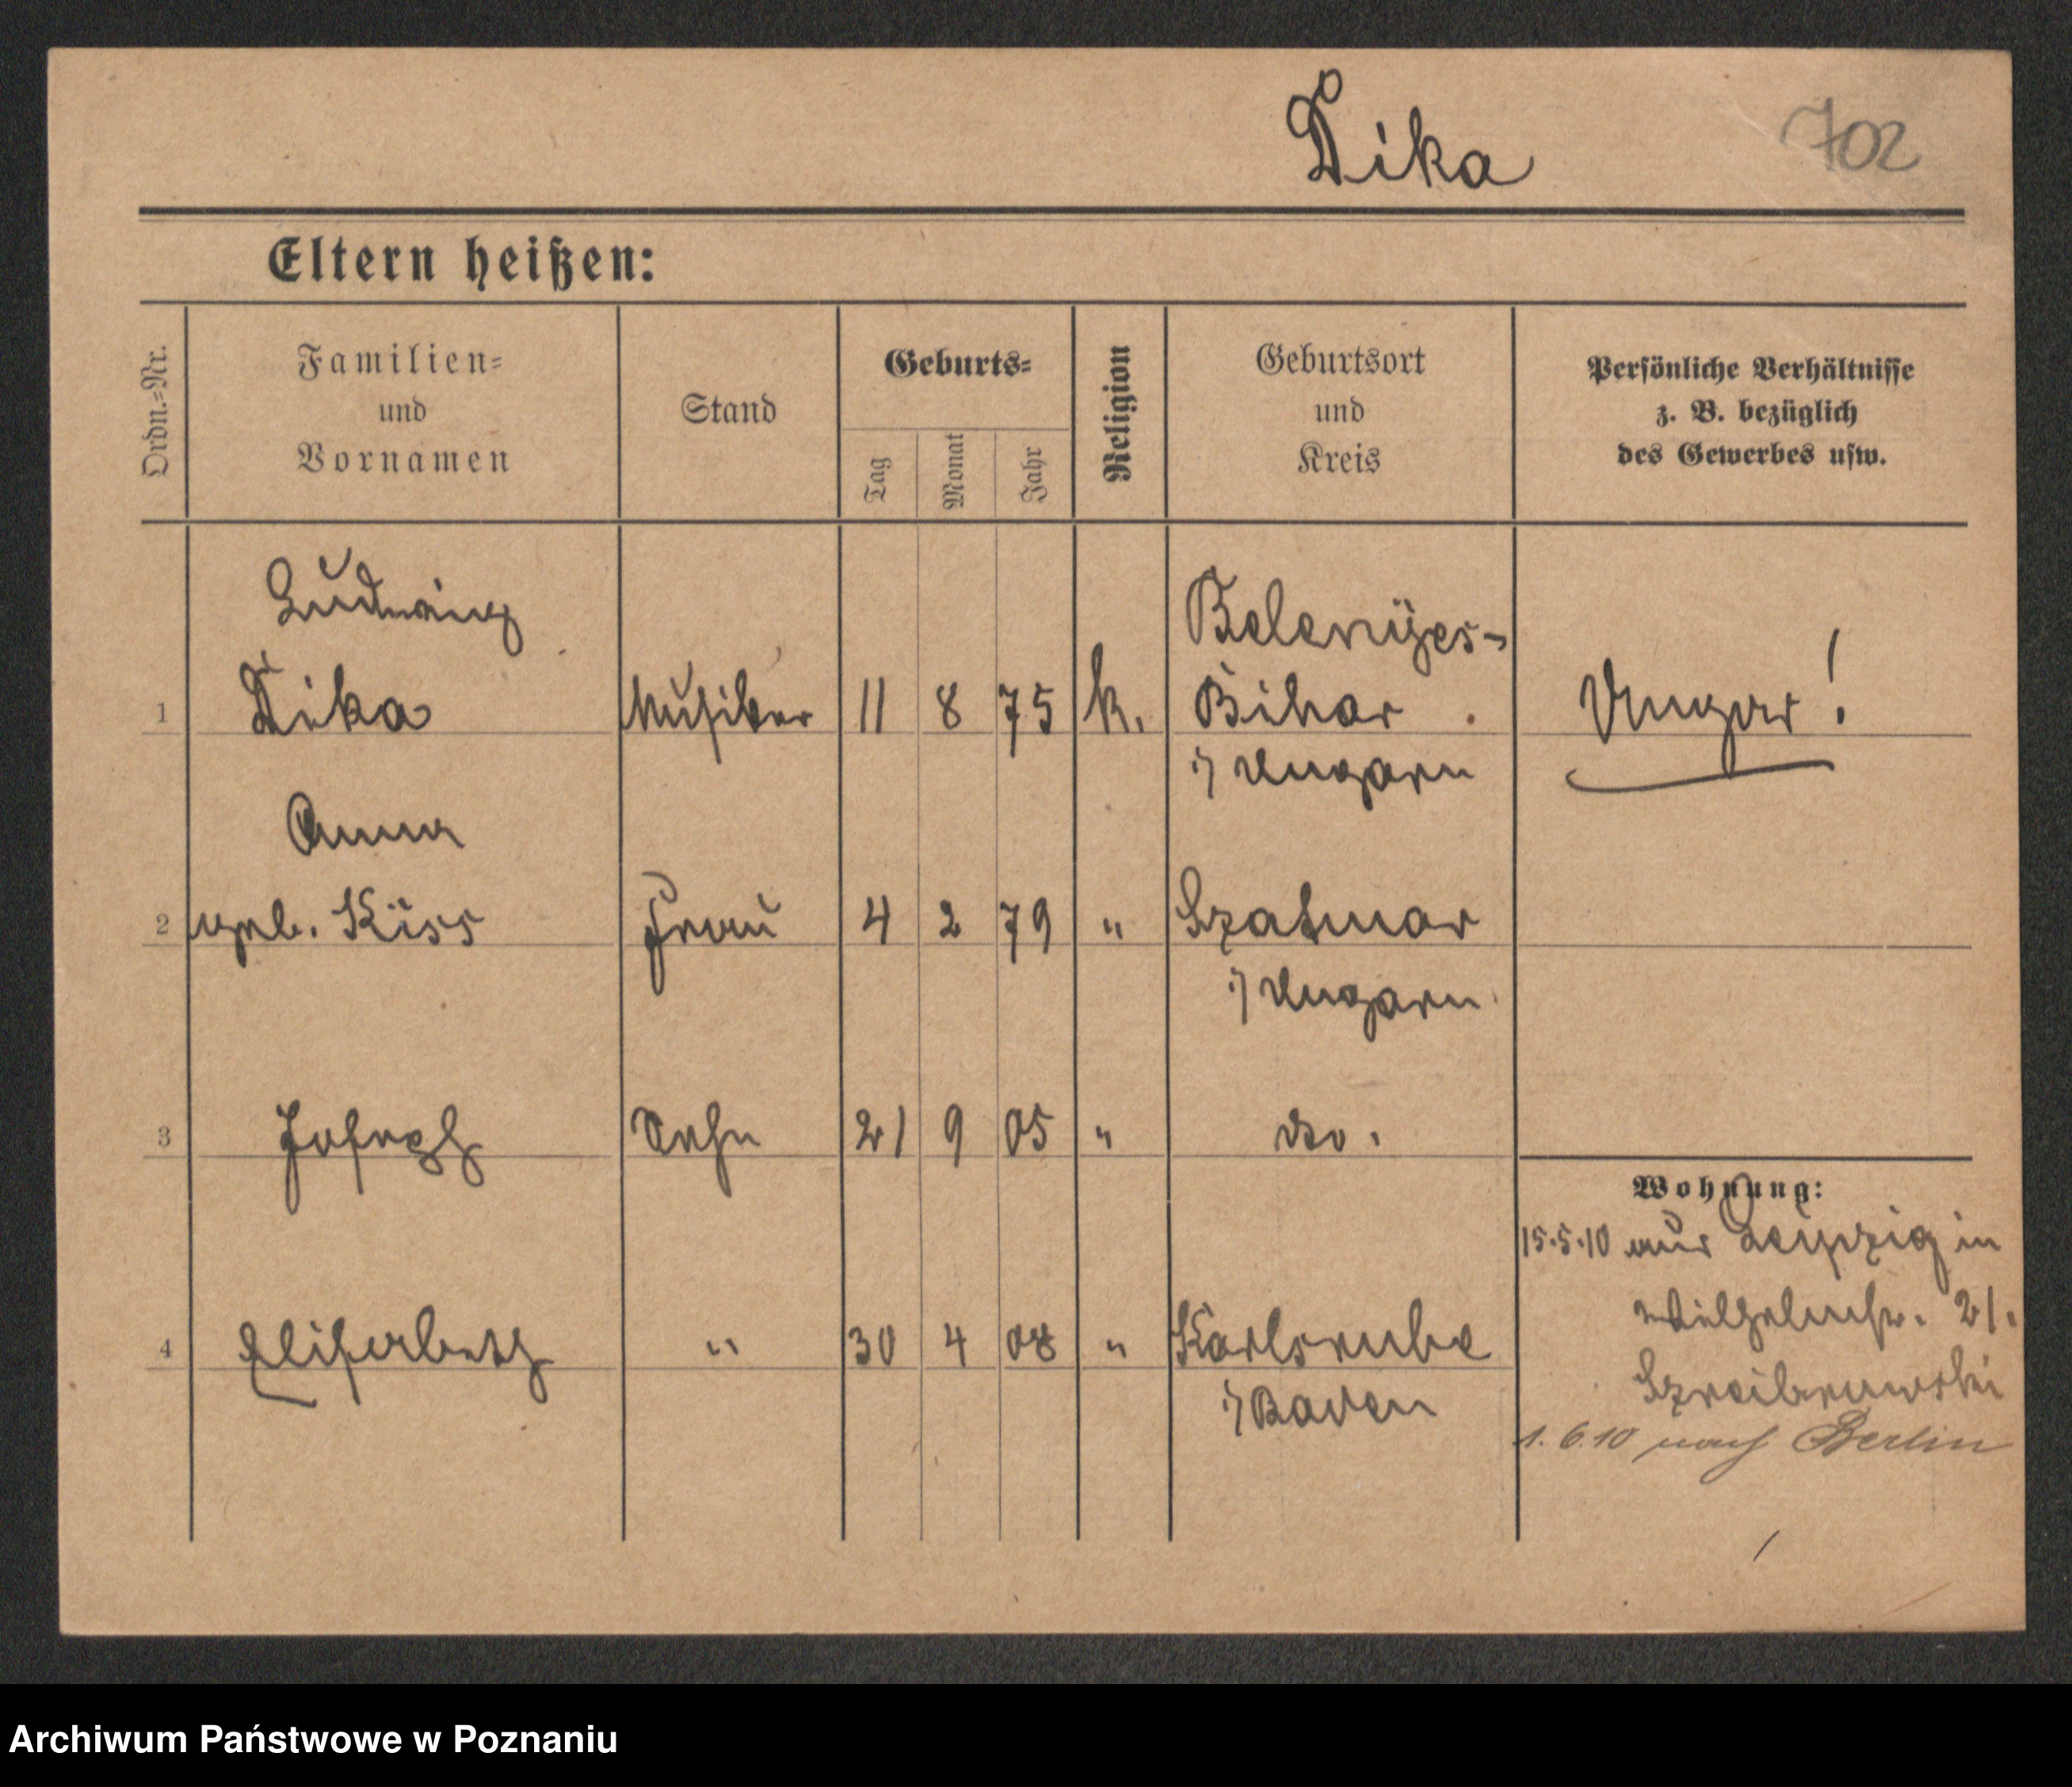 Dika 702
Eltern heißen:
Ordn.-Nr.
Familien-
und
Vornamen
Stand
Geburts-
Tag
Monat
Jahr
Religion
Geburtsort
und
Kreis
Persönliche Verhältnisse
z. B. bezüglich
des Gewerbes usw.
Ludwig
1 Dika Musiker 11 8 75 k. Belenyes-
Bihar Ungar!
i/ Ungarn
Anna
2 geb. Kiss Frau 4 2 79 " Szatmar
i/ Ungarn
3 Joseph Sohn 21 9 05 " do.
Wohnung:
15.5.10 aus Leipzig in
Wilhelmstr. 21.
4 Elisabeth " 30 4 08 " Karlsruhe
i/ Baden
1.6.10 nach Berlin
Archiwum Państwowe w Poznaniu